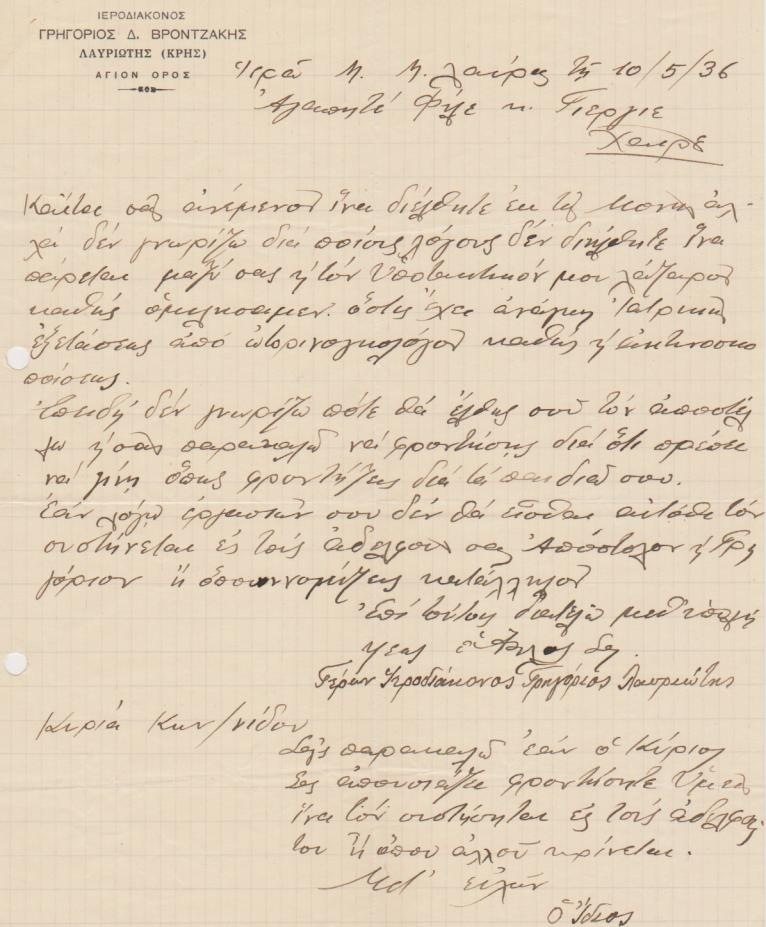 ΙΕΡΟΔΙΑΚΟΝΟΣ
ΓΡΗΓΟΡΙΟΣ Δ. ΒΡΟΝΤΖΑΚΗΣ
ΛΑΥΡΙΩΤΗΣ (ΚΡΗΣ)
ΑΓΙΟΝ ΟΡΟΣ
Ἱερᾷ Μ. Μ. Λαύρας τῇ 10/5/36
Ἀγαπητέ Φίλε κ. Γιέργιε
Χαῖρε
σας ἀνέμενον ἵνα διέλθητε ἐκ τῆς Μονῆς ἀλ-
λά δέν γνωρίζω διά ποίους λόγους δέν διήλθητε ἵνα
πάρεται μαζύ σας τόν Ὑποτακτικόν μου Λάζαρον
καθώς ὁμιλήσαμεν. ὅστις ἔχει ἀνάγκη Ἰατρικῆς
ἐξετάσεως ἀπό ὠτορινολαρυγγολόγον καθώς
Ἐπειδή δέν γνωρίζω πότε θά ἔλθης σοῦ τόν ἀποστέλ
λω σας παρακαλῶ νά φροντήσης διά ὅτι πρέπει
νά γίνη ὅπως φροντήζεις διά τά παιδιά σου.
ἐάν λόγῳ ἐργασιῶν σου δέν θά εἶσθαι αὐτόθι τόν
συστήνεται εἰς τούς ἀδελφούς σας Ἀπόστολον ἤ Γρη
γόριον ἤ ὅπου νομίζεις κατάλληλον
Ἐπί τούτοις διατελῶ
ὁ Φίλος σας
Γέρων Ἱεροδιάκονος Γρηγόριος Λαυριώτης
Κυρία
Σᾶς παρακαλῶ ἐάν ὁ Κύριος
σας ἀπουσιάζει φροντήσητε Ὑμεῖς
ἵνα τόν συστήσηται εἰς τούς ἀδελφούς
του ἤ ὅπου ἀλλοῦ κρίνεται.
Μετ' εὐχῶν
Ὁ Ἴδιος